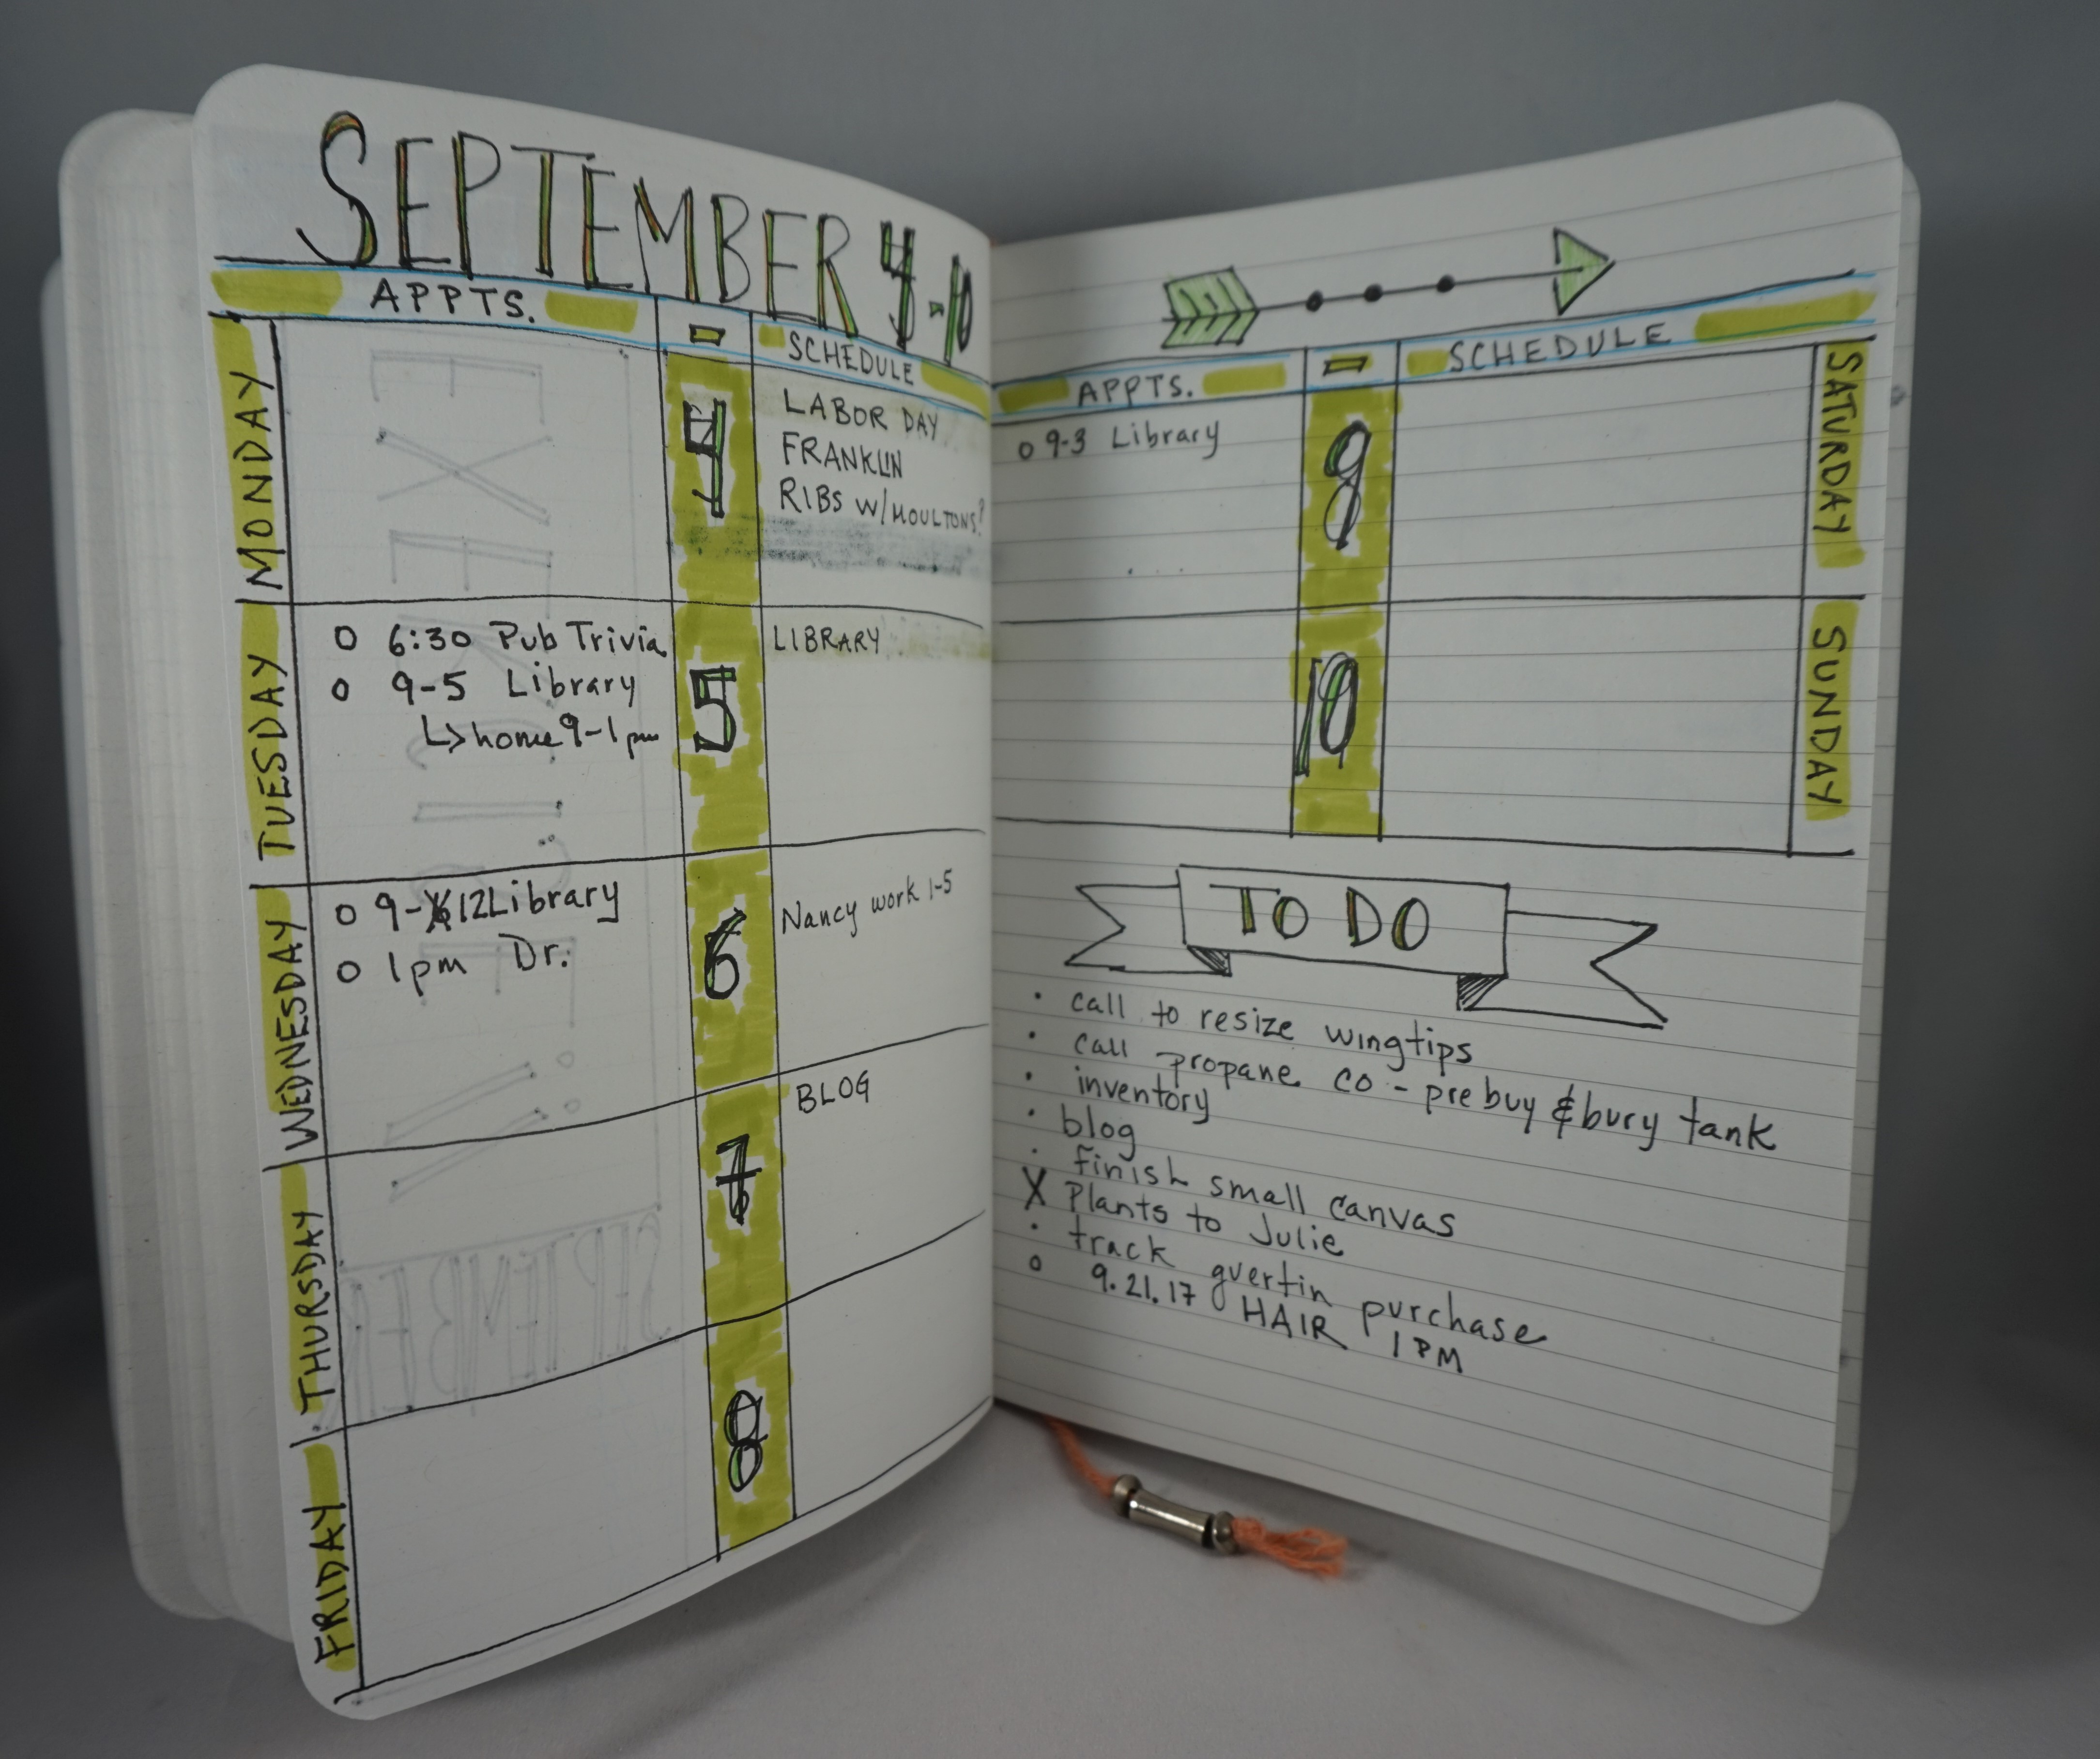 SEPTEMBER 4-10
APPTS.
SCHEDULE
MONDAY
4
LABOR DAY
FRANKLIN
RIBS W/MOULTONS?
TUESDAY
6:30 Pub Trivia
9-5 Library
↳home 9-1pm
5
LIBRARY
WEDNESDAY
9-12 Library
1pm Dr.
6
Nancy work 1-5
THURSDAY
7
BLOG
FRIDAY
8
APPTS.
SCHEDULE
9-3 Library
9
SATURDAY
10
SUNDAY
TO DO
· call to resize wingtips
· call propane co - prebuy & bury tank
· inventory
· blog
· finish small canvas
X Plants to Julie
· track guertin purchase
o 9.21.17 HAIR 1PM